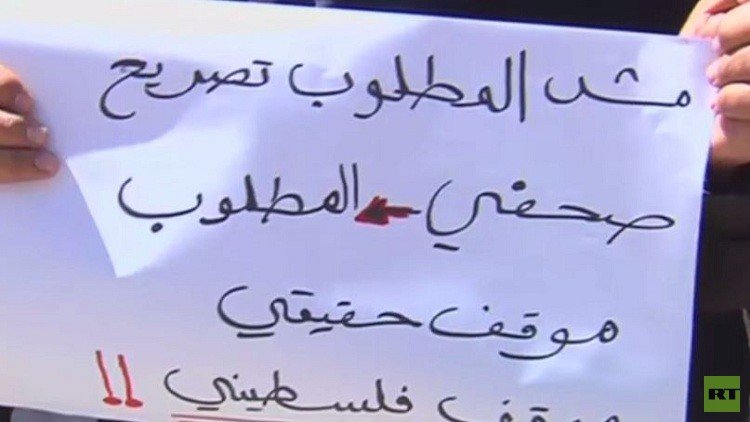 مش المطلوب تصريح
صحفي ← المطلوب
موقف حقيقي
موقف فلسطيني !!
RT